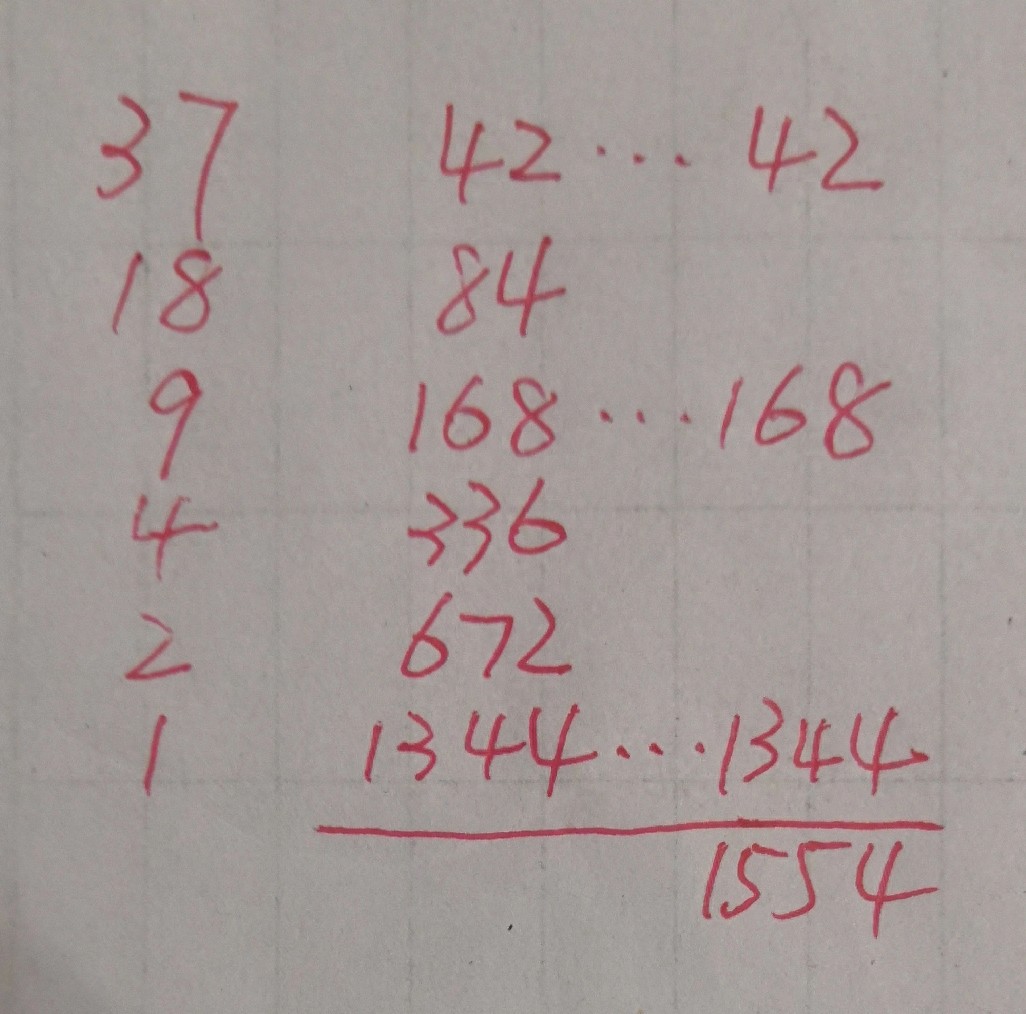 37 42 ... 42
18 84
9 168 ... 168
4 336
2 672
1 1344 ... 1344
1554